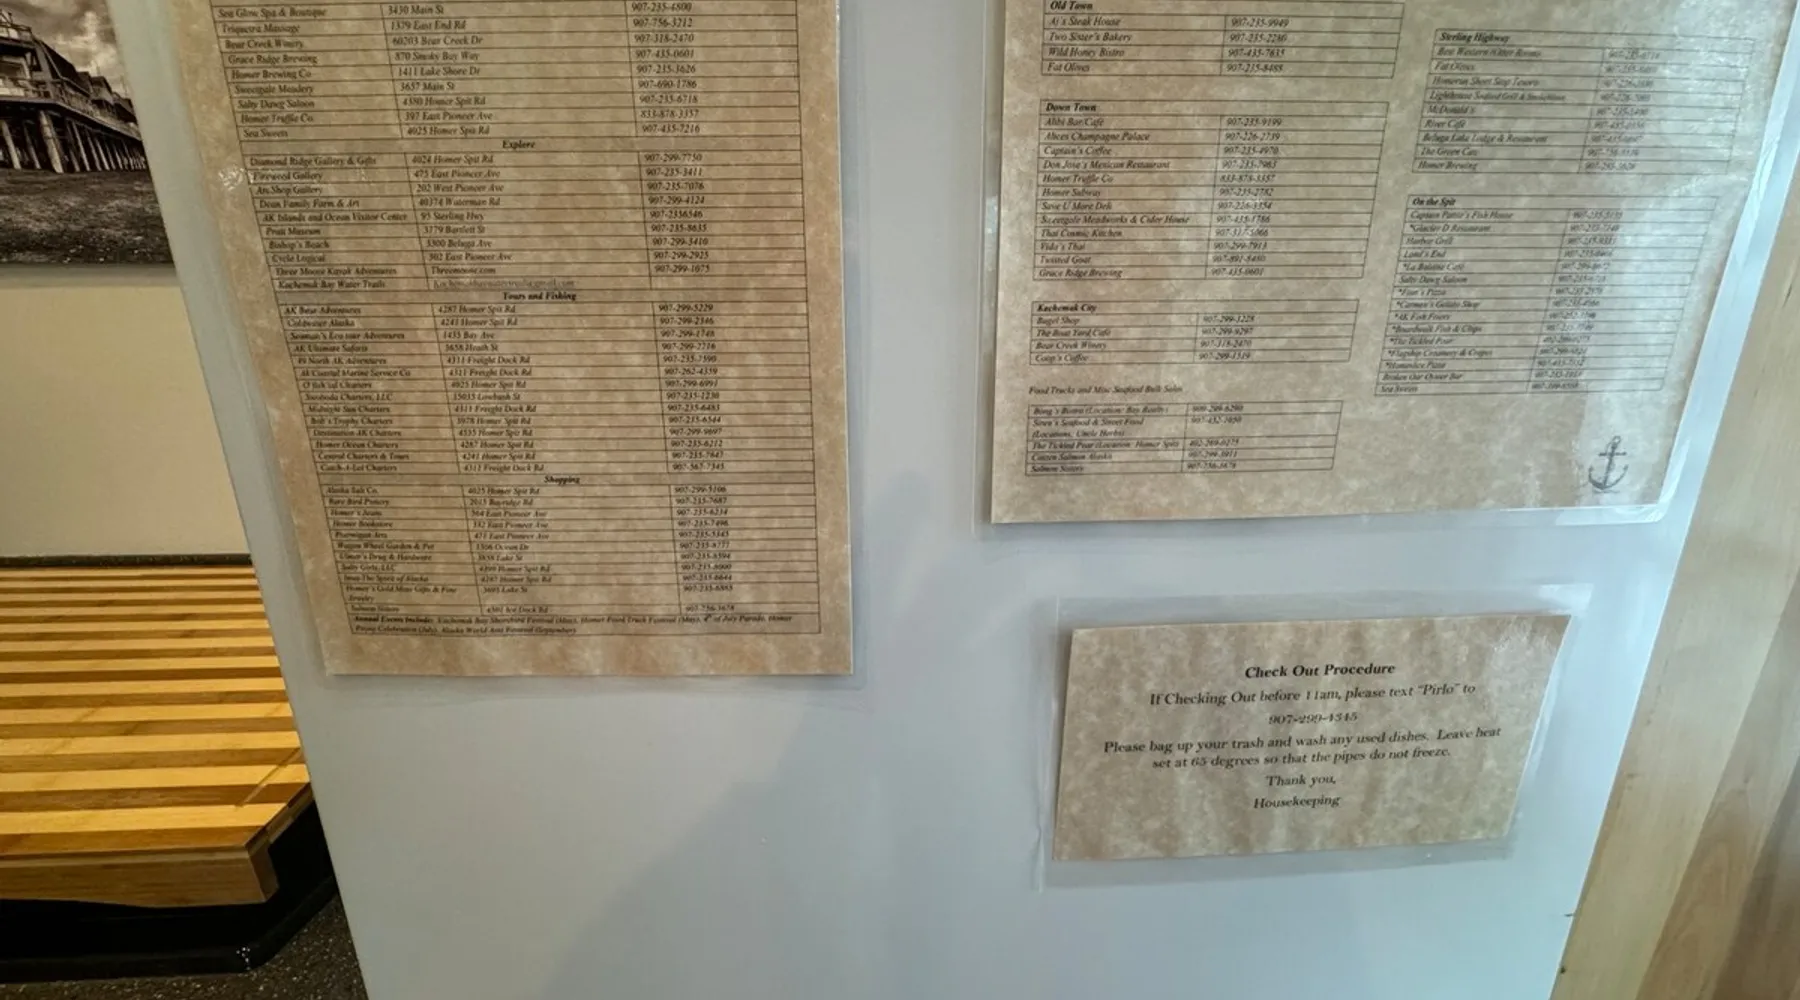 Sea Glow Spa & Boutique 3430 Main St 907-235-4800
Triquetra Massage 1379 East End Rd 907-756-3212
Bear Creek Winery 60203 Bear Creek Dr 907-318-2470
Grace Ridge Brewing 870 Smoky Bay Way 907-435-0601
Homer Brewing Co 1411 Lake Shore Dr 907-235-3626
Sweetgale Meadery 3657 Main St 907-690-1786
Salty Dawg Saloon 4380 Homer Spit Rd 907-235-6718
Homer Truffle Co 397 East Pioneer Ave 833-878-3357
Sea Sweets 4025 Homer Spit Rd 907-435-7216
Explore
Diamond Ridge Gallery & Gifts 4024 Homer Spit Rd 907-299-7750
Fireweed Gallery 475 East Pioneer Ave 907-235-3411
Art Shop Gallery 202 West Pioneer Ave 907-235-7076
Dean Family Farm & Art 40374 Waterman Rd 907-299-4124
AK Islands and Ocean Visitor Center 95 Sterling Hwy 907-2356546
Pratt Museum 3779 Bartlett St 907-235-8635
Bishop's Beach 3300 Beluga Ave 907-299-3410
Cycle Logical 302 East Pioneer Ave 907-299-2925
Three Moose Kayak Adventures Threemoose.com 907-299-1075
Kachemak Bay Water Trails
Tours and Fishing
AK Bear Adventures 4287 Homer Spit Rd 907-299-5229
Coldwater Alaska 4241 Homer Spit Rd 907-299-2346
Seaman's Eco tour Adventures 1435 Bay Ave 907-299-1748
AK Ultimate Safaris 3658 Heath St 907-299-2716
49 North AK Adventures 4311 Freight Dock Rd 907-235-7590
AK Coastal Marine Service Co 4311 Freight Dock Rd 907-262-4359
O'fish'ial Charters 4025 Homer Spit Rd 907-299-6991
Swoboda Charters, LLC 907-235-1230
Midnight Sun Charters 4311 Freight Dock Rd 907-235-6483
Bob's Trophy Charters 3978 Homer Spit Rd 907-235-6544
Destination AK Charters 4535 Homer Spit Rd 907-299-9697
Homer Ocean Charters 4287 Homer Spit Rd 907-235-6212
Central Charters & Tours 4241 Homer Spit Rd 907-235-7847
Catch-A-Lot Charters 4311 Freight Dock Rd 907-567-7345
Shopping
Alaska Salt Co. 4025 Homer Spit Rd 907-299-5106
Rare Bird Pottery 2015 Bayridge Rd 907-235-7687
Homer's Jeans 564 East Pioneer Ave 907-235-6234
Homer Bookstore 332 East Pioneer Ave 907-235-7496
Ptarmigan Arts 471 East Pioneer Ave 907-235-5345
Wagon Wheel Garden & Pet 1306 Ocean Dr 907-235-8777
Ulmer's Drug & Hardware 3858 Lake St 907-235-8594
Salty Girls, LLC 4309 Homer Spit Rd 907-235-8000
Inua-The Spirit of Alaska 4287 Homer Spit Rd 907-235-6644
Homer's Gold Mine Gifts & Fine 3695 Lake St
Jewelry
Salmon Sisters 4301 Ice Dock Rd 907-756-3678
Annual Events Include: Kachemak Bay Shorebird Festival (May), Homer Food Truck Festival (May), 4th of July Parade, Homer
Pride Celebration (July), Alaska World Arts Festival (September)
Old Town
Aj's Steak House 907-235-9949
Two Sister's Bakery 907-235-2280
Wild Honey Bistro 907-435-7635
Fat Olives 907-235-8488
Down Town
Alibi Bar Café 907-235-9199
Alices Champagne Palace 907-226-2739
Captain's Coffee 907-235-4970
Don Jose's Mexican Restaurant 907-235-7963
Homer Truffle Co 833-878-3357
Homer Subway 907-235-2782
Save U More Deli 907-226-3354
Sweetgale Meadworks & Cider House 907-435-1786
Thai Cosmic Kitchen 907-317-5066
Vida's Thai 907-299-7913
Twisted Goat 907-891-8480
Grace Ridge Brewing 907-435-0601
Kachemak City
Bagel Shop 907-299-1228
The Boat Yard Café 907-299-9297
Bear Creek Winery 907-318-2470
Coop's Coffee 907-299-1519
Food Trucks and Misc Seafood Bulk Sales
Bong's Bistro (Location: Bay Realty) 808-269-6290
Siren's Seafood & Street Food
(Locations, Uncle Herbs)
The Tickled Pear (Location: Homer Spit) 402-269-0275
Citizen Salmon Alaska
Salmon Sisters 907-756-3678
Sterling Highway
Best Western
Fat Olives
Homerun Short Stop Tesoro
Lighthouse Seafood Grill &
McDonald's
River Café
Beluga Lake Lodge & Restaurant
The Green Can
Homer Brewing
On the Spit
Captain Pattie's Fish House
*Glacier D Restaurant
Harbor Grill
Land's End
*La Baleine Café
Salty Dawg Saloon
*Finn's Pizza
*Carmen's Gelato Shop
*AK Fish Fryers
*Boardwalk Fish & Chips
*The Tickled Pear
*Flagship Creamery & Crepes
*HomeSlice Pizza
Broken Oar Oyster Bar
Sea Sweets
Check Out Procedure
If Checking Out before 11am, please text "Pirlo" to
907-299-4345
Please bag up your trash and wash any used dishes. Leave heat
set at 65 degrees so that the pipes do not freeze.
Thank you,
Housekeeping